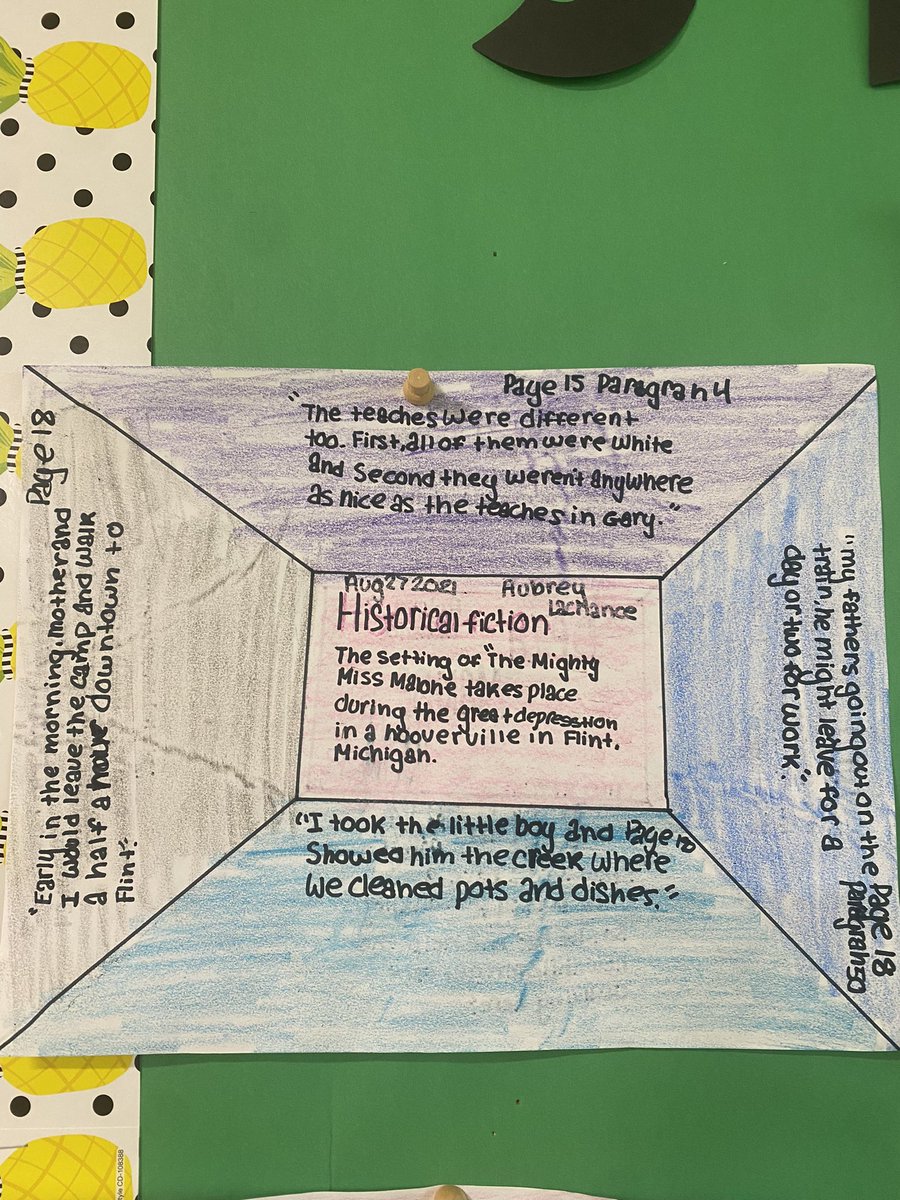 Page 15 Paragrah 4
"The teaches were different
too. First, all of them were white
and Second they weren't anywhere
as nice as the teaches in Gary."
Page 18
"Early in the morning, mother and
I would leave the camp and walk
a half a hour downtown to
Flint."
Aug 27 2021 Aubrey
Lachance
Historical fiction
The setting of "The Mighty
Miss Malone takes place
during the great depression
in a hooverville in Flint,
Michigan.
"my fathers going out on the
train, he might leave for a
day or two for work."
Page 18
paragrah 50
"I took the little boy and Page
Showed him the creek where
We cleaned pots and dishes."
CD-108388